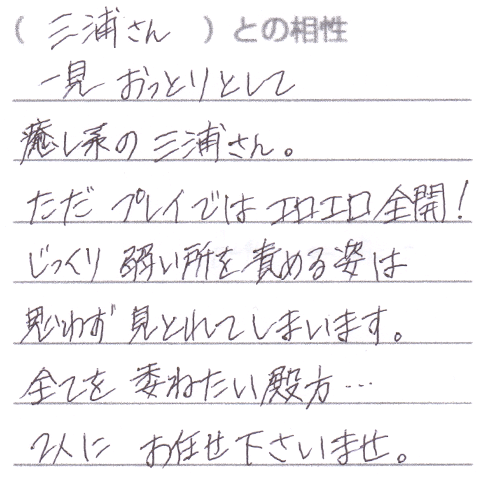 （ 三浦さん ）との相性
一見 おっとりとして
癒し系の 三浦さん。
ただ プレイでは エロエロ全開！
じっくり 弱い所を責める姿は
思わず 見とれてしまいます。
全てを 委ねたい殿方…
2人に お任せ下さいませ。